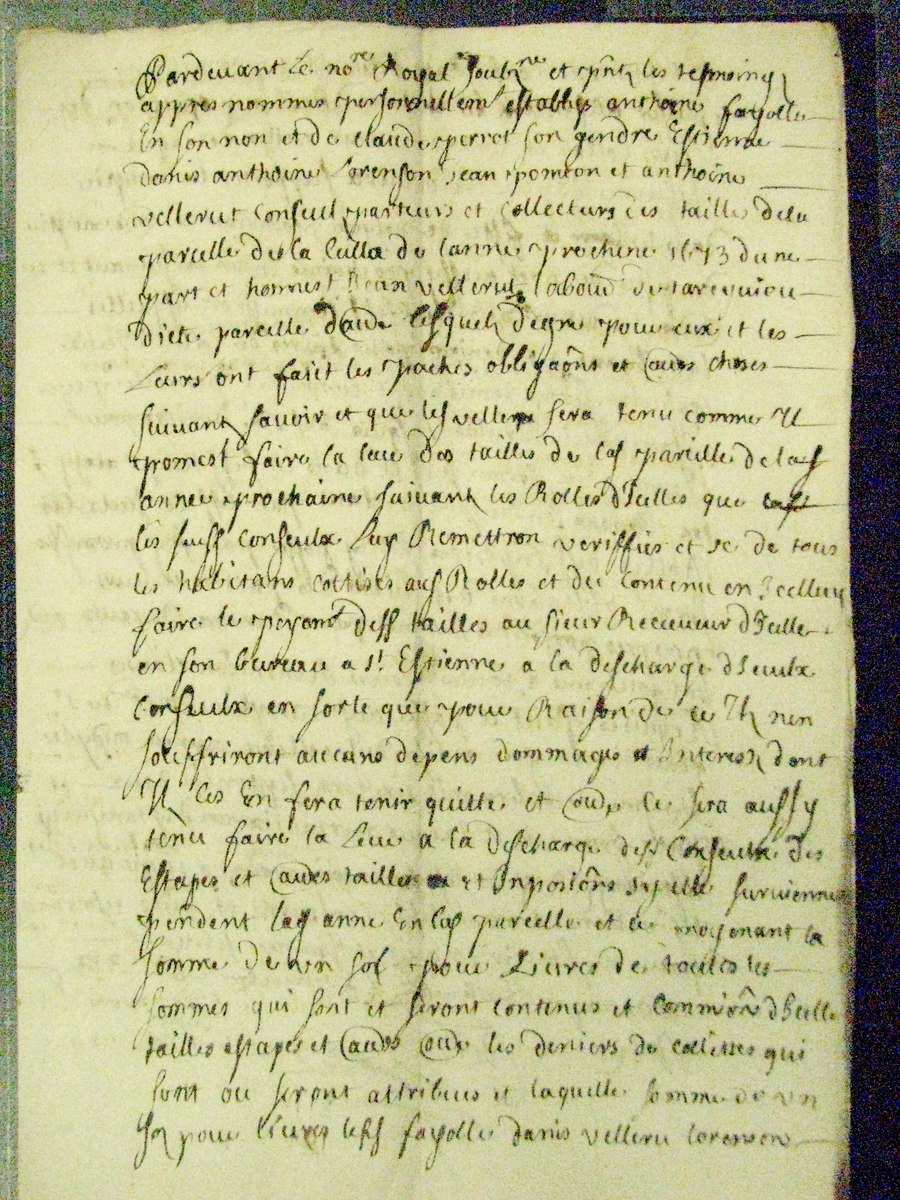 Pardevant le no.re Royal soubz.ne et p.ntz les tesmoingz
appres nommes personnellem.t establys anthoine fayolle
En son non et de claude perrot son gendre Estienne
danis anthoine Lorenson Jean pomeon et anthoine
vellerut Conseul parteurs et Collecteurs des taille dela
parcelle de la Culla de lanne prochene 1673 dune
part et honnest Jean vellerut labour de
dicte parcelle daude lesquelz degre pour eux et les
Leurs ont faict les paches obligaôns et autres choses
suivant savoir et que les vellerut sera tenu comme Il
promest faire la leve des tailles de las parcelle de las
annee prochaine suivant les Rolles dIcelles que
les suss Conseulx Luy Remettron veriffies et se de tous
les habitans cottises aus Rolles et du Contenu en Icelleux
faire le peyam.t dess tailles au sieur Recepveur dIcelle
en son bureau a S.t Estienne a la descharge dIceulx
Conseulx en sorte que pour Raison de ce Ilz nen
souffriront aucuns depens dommages et Interestz dont
Il les En fera tenir quitte et oultre ce sera aussy
tenu faire la Leve a la descharge desd Conseulx des
Estapes et autres tailles et Inposiôns sy elle surviennent
pendent las anne En las parcelle et ce moyenant la
somme de un sol pour Livres de toutes les
sommes qui sont et seront contenus et Commiôns dIcelle
tailles estapes et autres oultre les deniers de collettes qui
sont ou seront attribues et laquelle somme de un
sol pour livres lesss fayolle danis velleru lorenson